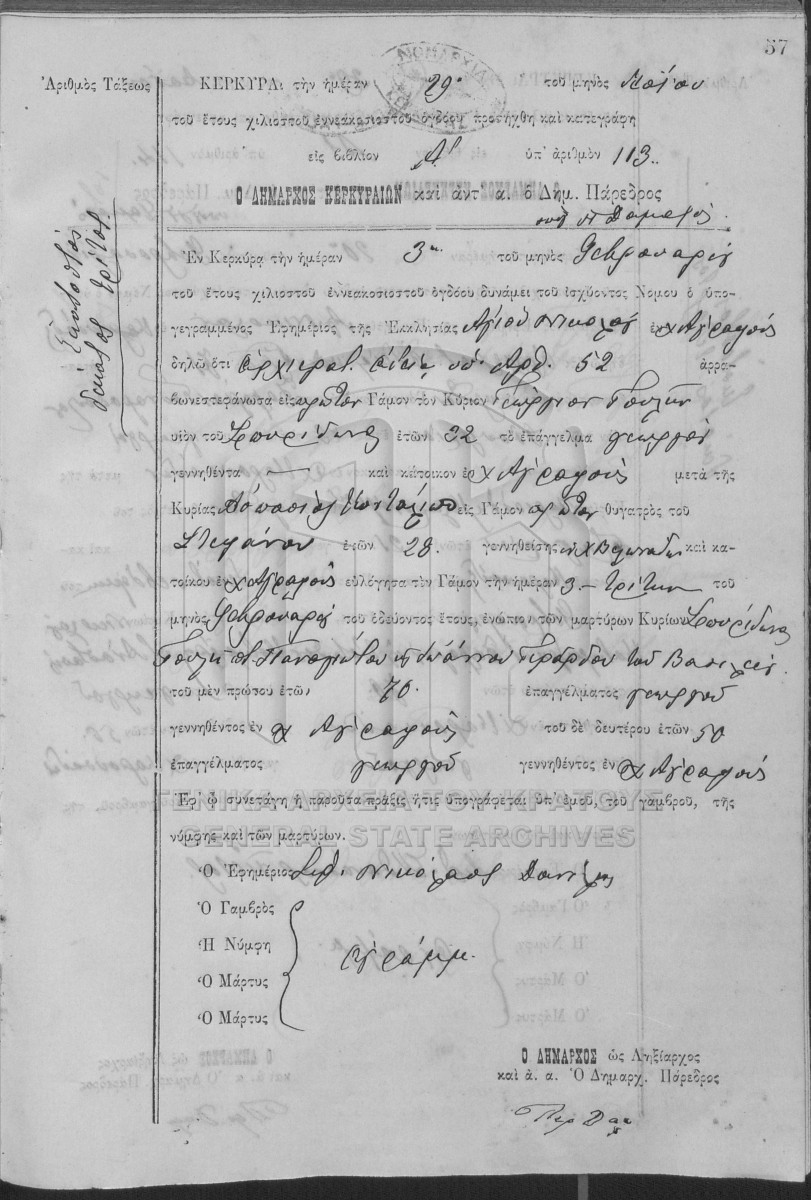 57
Ἀριθμὸς Τάξεως
ΚΕΡΚΥΡΑ, τὴν ἡμέραν 29 τοῦ μηνὸς Μαΐου
τοῦ ἔτους χιλιοστοῦ ἐννεακοσιοστοῦ ὀγδόου προσήχθη καὶ κατεγράφη
εἰς βιβλίον Α' ὑπ' ἀριθμὸν 113
Ὁ ΔΗΜΑΡΧΟΣ ΚΕΡΚΥΡΑΙΩΝ καὶ ἀντ' α. ὁ Δημ. Πάρεδρος
ἑκατοστὸς
δέκατος τρίτος
Ἐν Κερκύρᾳ τὴν ἡμέραν 3 τοῦ μηνὸς Φεβρουαρίου
τοῦ ἔτους χιλιοστοῦ ἐννεακοσιοστοῦ ὀγδόου δυνάμει τοῦ ἰσχύοντος Νόμου ὁ ὑπο-
γεγραμμένος Ἐφημέριος τῆς Ἐκκλησίας Ἁγίου Νικολάου ἐν χ Ἀγραφούς
δηλῶ ὅτι ἀρχιερατ. ἀδείᾳ ὑπ. Ἀρθ. 52 ἀρρα-
βωνεστεφάνωσα εἰς πρῶτον Γάμον τὸν Κύριον Γεώργιον Γουλῆν
υἱὸν τοῦ Σπυρίδωνος ἐτῶν 32 τὸ ἐπάγγελμα γεωργὸν
γεννηθέντα — καὶ κάτοικον ἐν χ Ἀγραφοὺς μετὰ τῆς
Κυρίας Ἀσπασίας εἰς Γάμον πρῶτον θυγατρὸς τοῦ
Στεφάνου ἐτῶν 28. γεννηθείσης ἐν χ καὶ κα-
τοίκου ἐν χ Ἀγραφοὺς εὐλόγησα τὸν Γάμον τὴν ἡμέραν 3 — τρίτην τοῦ
μηνὸς Φεβρουαρίου τοῦ ὁδεύοντος ἔτους, ἐνώπιον τῶν μαρτύρων Κυρίων Σπυρίδωνος
Γουλῆ Παναγιώτου Ἰωάννου τοῦ Βασιλείου
τοῦ μὲν πρώτου ἐτῶν 70. ἐπαγγέλματος γεωργοῦ
γεννηθέντος ἐν χ Ἀγραφοὺς τοῦ δὲ δευτέρου ἐτῶν 50
ἐπαγγέλματος γεωργοῦ γεννηθέντος ἐν χ Ἀγραφοὺς
ΓΕΝΙΚΑ ΑΡΧΕΙΑ ΤΟΥ ΚΡΑΤΟΥΣ
Ἐφ' ᾧ συνετάγη ἡ παροῦσα πρᾶξις ἥτις ὑπογράφεται ὑπ' ἐμοῦ, τοῦ γαμβροῦ, τῆς
GENERAL STATE ARCHIVES
νύμφης καὶ τῶν μαρτύρων.
Ὁ Ἐφημέριος Νικόλαος
Ὁ Γαμβρὸς
Ἡ Νύμφη
ἀγράμμ.
Ὁ Μάρτυς
Ὁ Μάρτυς
Ὁ ΔΗΜΑΡΧΟΣ ὡς Ληξίαρχος
καὶ ἀ. α. Ὁ Δημαρχ. Πάρεδρος